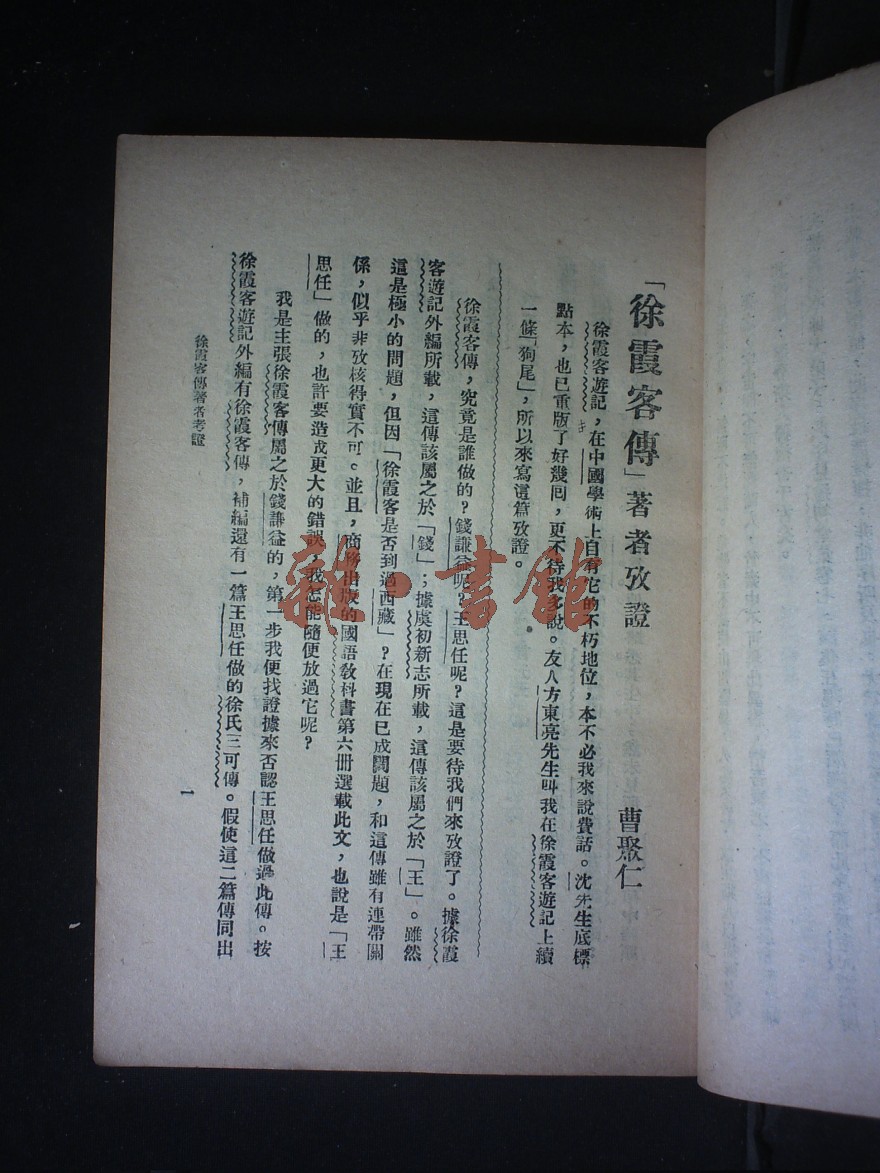 「徐霞客傳」著者攷證
曹聚仁
徐霞客遊記，在中國學術上自有它的不朽地位，本不必我來說費話。沈先生底標
點本，也已重版了好幾囘，更不待我多說。友人方東亮先生叫我在徐霞客遊記上續
一條「狗尾」，所以來寫這篇攷證。
徐霞客傳，究竟是誰做的？錢謙益呢？王思任呢？這是要待我們來攷證了。據徐霞
客遊記外編所載，這傳該屬之於「錢」；據虞初新志所載，這傳該屬之於「王」。雖然
這是極小的問題，但因「徐霞客是否到過西藏」？在現在已成問題，和這傳雖有連帶關
係，似乎非攷核得實不可。並且，商務出版的國語敎科書第六冊選載此文，也說是「王
思任」做的，也許要造成更大的錯誤，我怎能隨便放過它呢？
我是主張徐霞客傳屬之於錢謙益的，第一步我便找證據來否認王思任做過此傳。按
徐霞客遊記外編有徐霞客傳，補編還有一篇王思任做的徐氏三可傳。假使這二篇傳同出
徐霞客傳著者考證
一
龍一書館